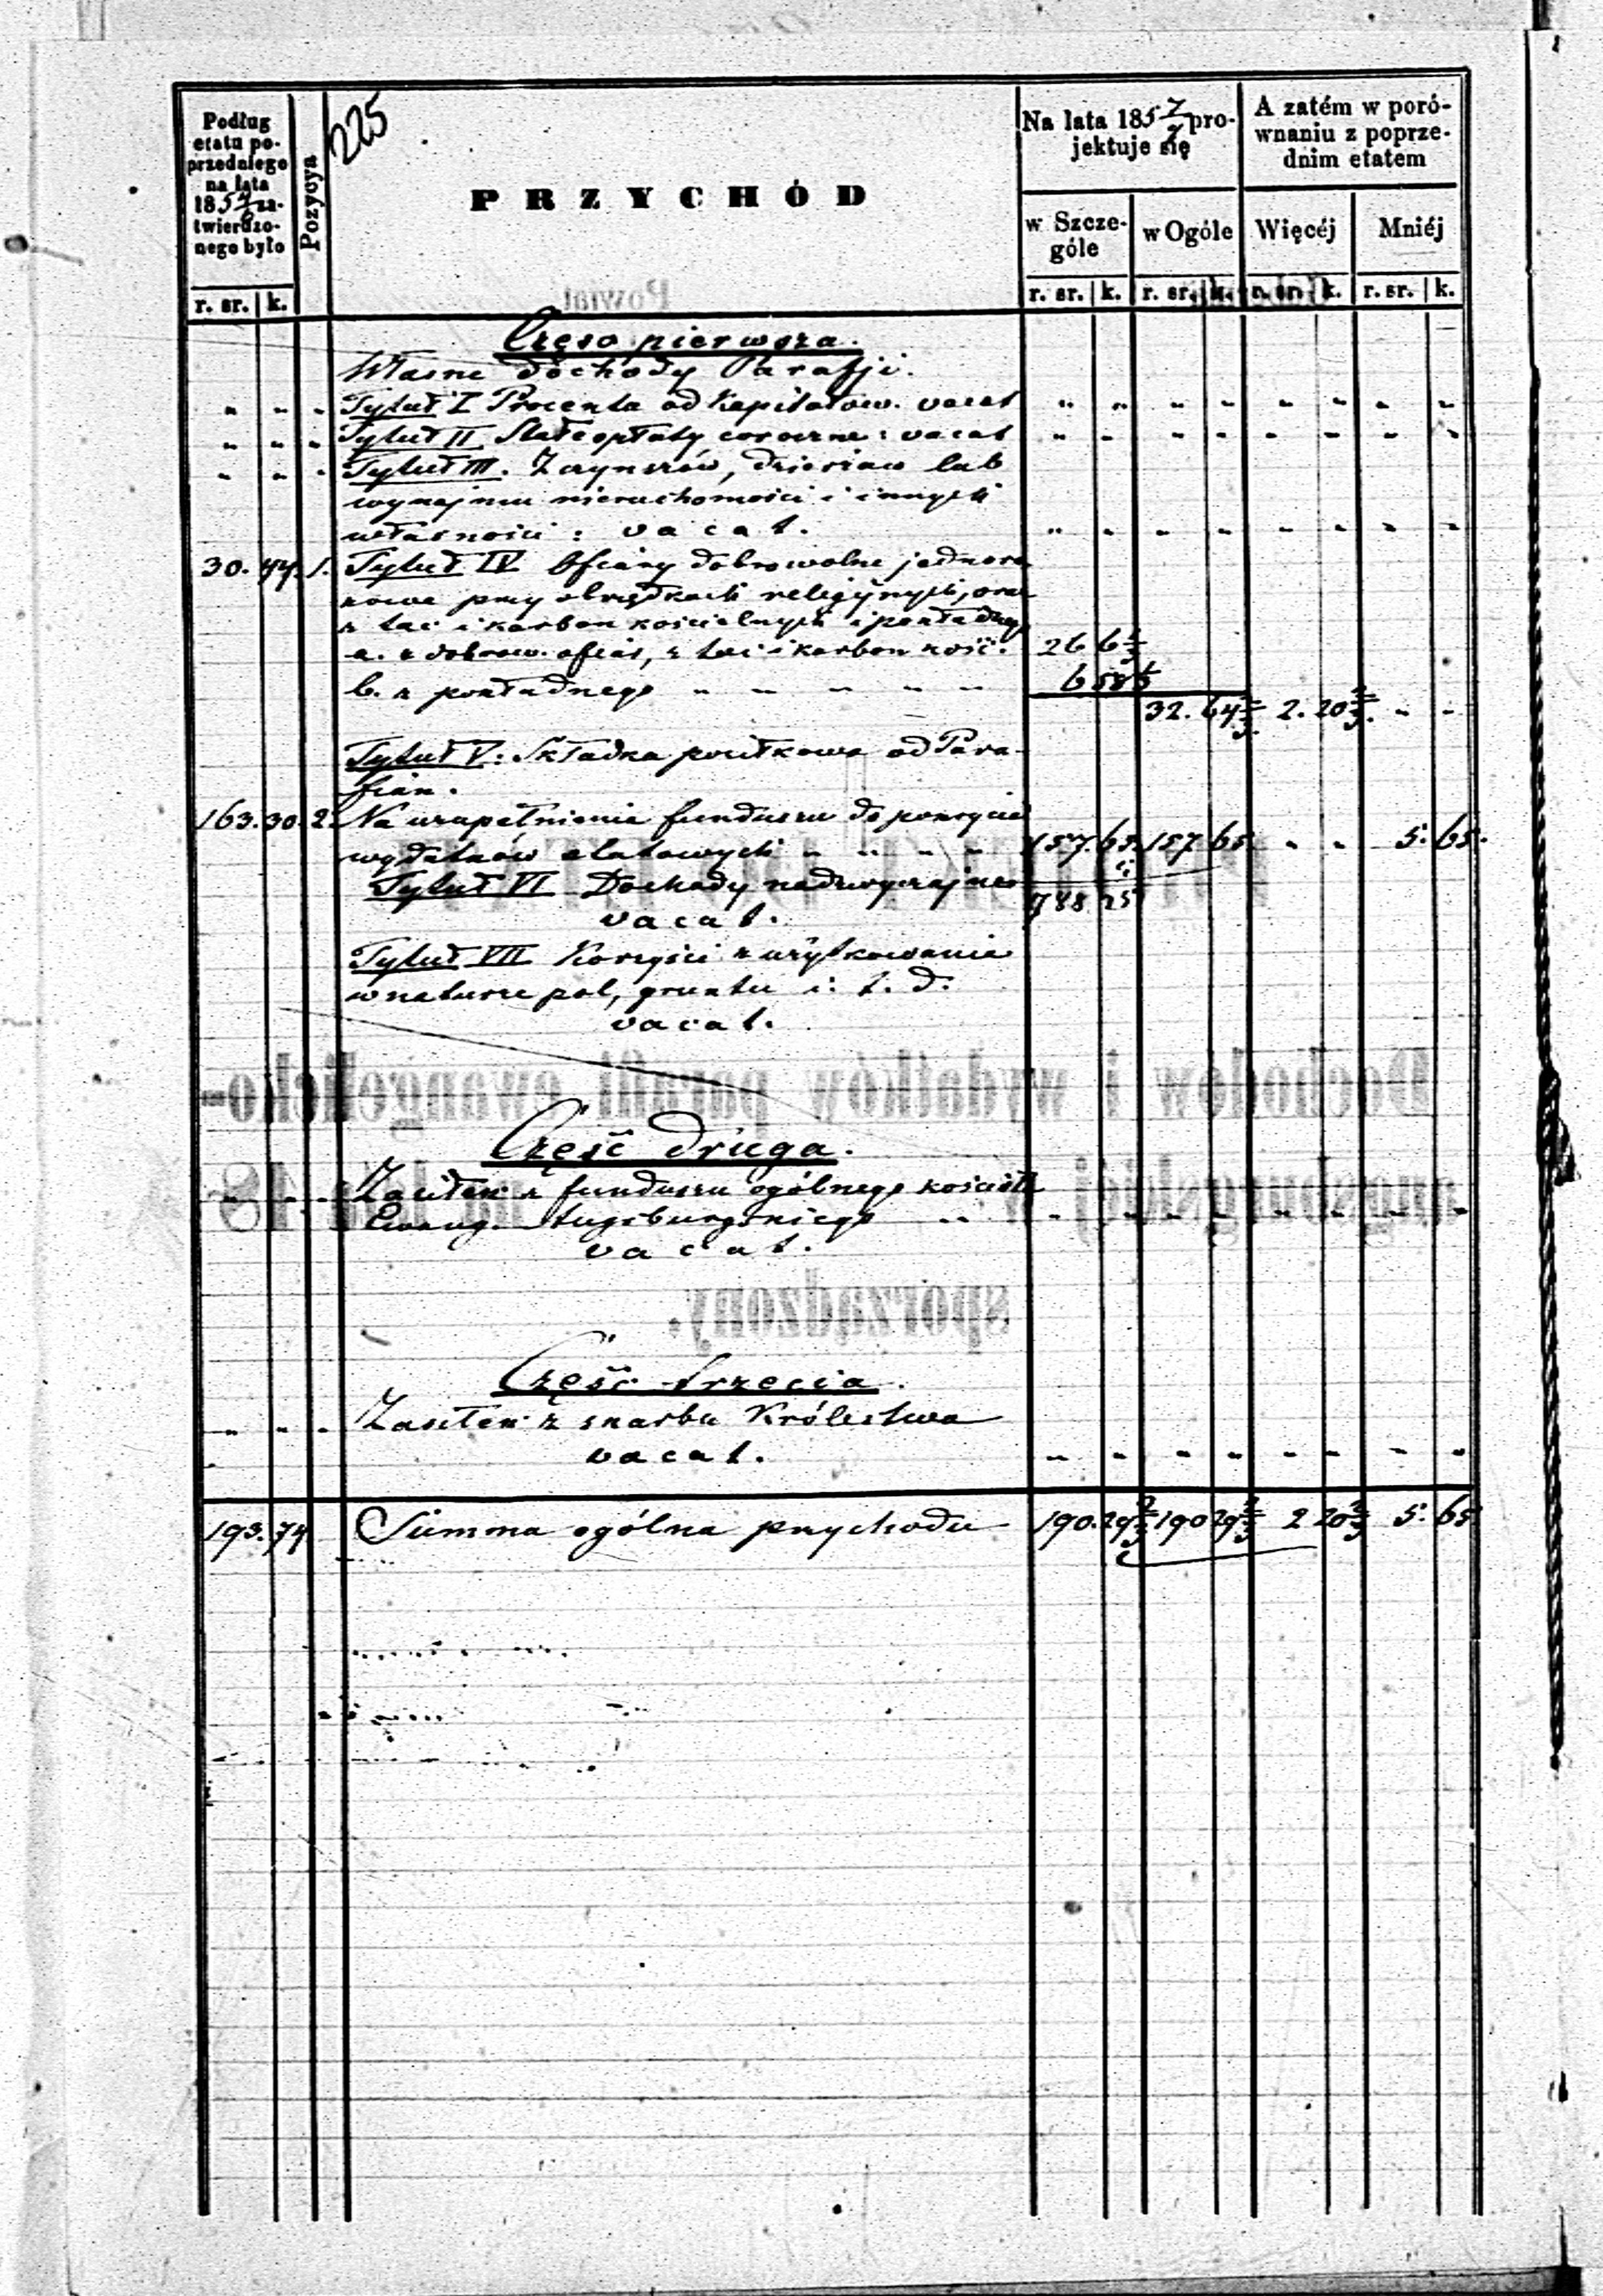 225
Podług etatu poprzedniego na lata 185 4/6 zatwierdzonego było
Pozycya
PRZYCHÓD
Na lata 185 7/9 projektuje się
A zatém w porównaniu z poprzednim etatem
w Szczególe
w Ogóle
Więcéj
Mniéj
r. sr. k. r. sr. k. r. sr. k. r. sr. k. r. sr. k.
Część pierwsza.
Własne dochody Parafji.
Tytuł I Procenta od Kapitałów. vacat
Tytuł II Stałe opłaty coroczne: vacat
Tytuł III. Z czynszów, dzierżaw lub
wynajmu nieruchomości i innych
własności: vacat.
30. 44. 1. Tytuł IV Ofiary dobrowolne jednora
zowe przy obrzędkach religijnych, oraz
z tac i karbon kościelnych i pokładneg
a. z dobrow. ofiar, z tac i karbon kość. 26 6 1/3
b. z pokładnego 6 58 1/3
32. 64 2/3 2. 20 2/3
Tytuł V: Składka posiłkowa od Para-
fian.
163. 30. 2. Na uzupełnienie funduszu do pokrycia
wydatków etatowych 157. 65. 157 65. 5. 65.
Tytuł VI Dochody nadzwyczajne
vacat. 788 25
Tytuł VII Korzyści z użytkowania
w naturze pól, gruntu i: t. d:
vacat.
Część druga.
Zasiłek z funduszu ogólnego kościoła
Ewang. Augsburgskiego
vacat.
Część trzecia.
Zasiłek z skarbu Królestwa
vacat.
193. 74 Summa ogólna przychodu 190. 29 2/3 190 29 2/3 2 20 2/3 5. 65